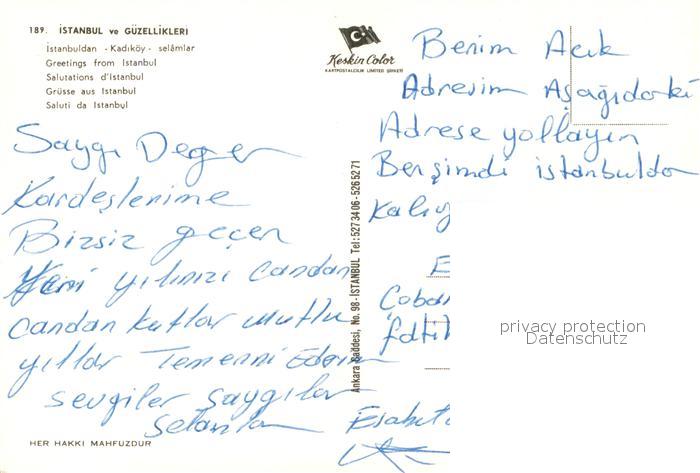 189. İSTANBUL ve GÜZELLİKLERİ
İstanbuldan - Kadıköy - selâmlar
Greetings from Istanbul
Salutations d'Istanbul
Grüsse aus Istanbul
Saluti da Istanbul
Saygı Değer
Kardeşlerime
Bizsiz geçen
Yeni yılınızı Candan
candan kutlar mutlu
yıllar Temenni Ederim
sevgiler saygılar
Selamlar
HER HAKKI MAHFUZDUR
Keskin Color
KARTPOSTALCILIK LIMITED ŞİRKETİ
Ankara Caddesi, No. 98 - İSTANBUL Tel: 527 34 06 - 526 52 71
Benim Açık
Adresim Aşağıdaki
Adrese yollayın
Ben şimdi istanbulda
Kalıy
E
Çoban
fatih
privacy protection
Datenschutz